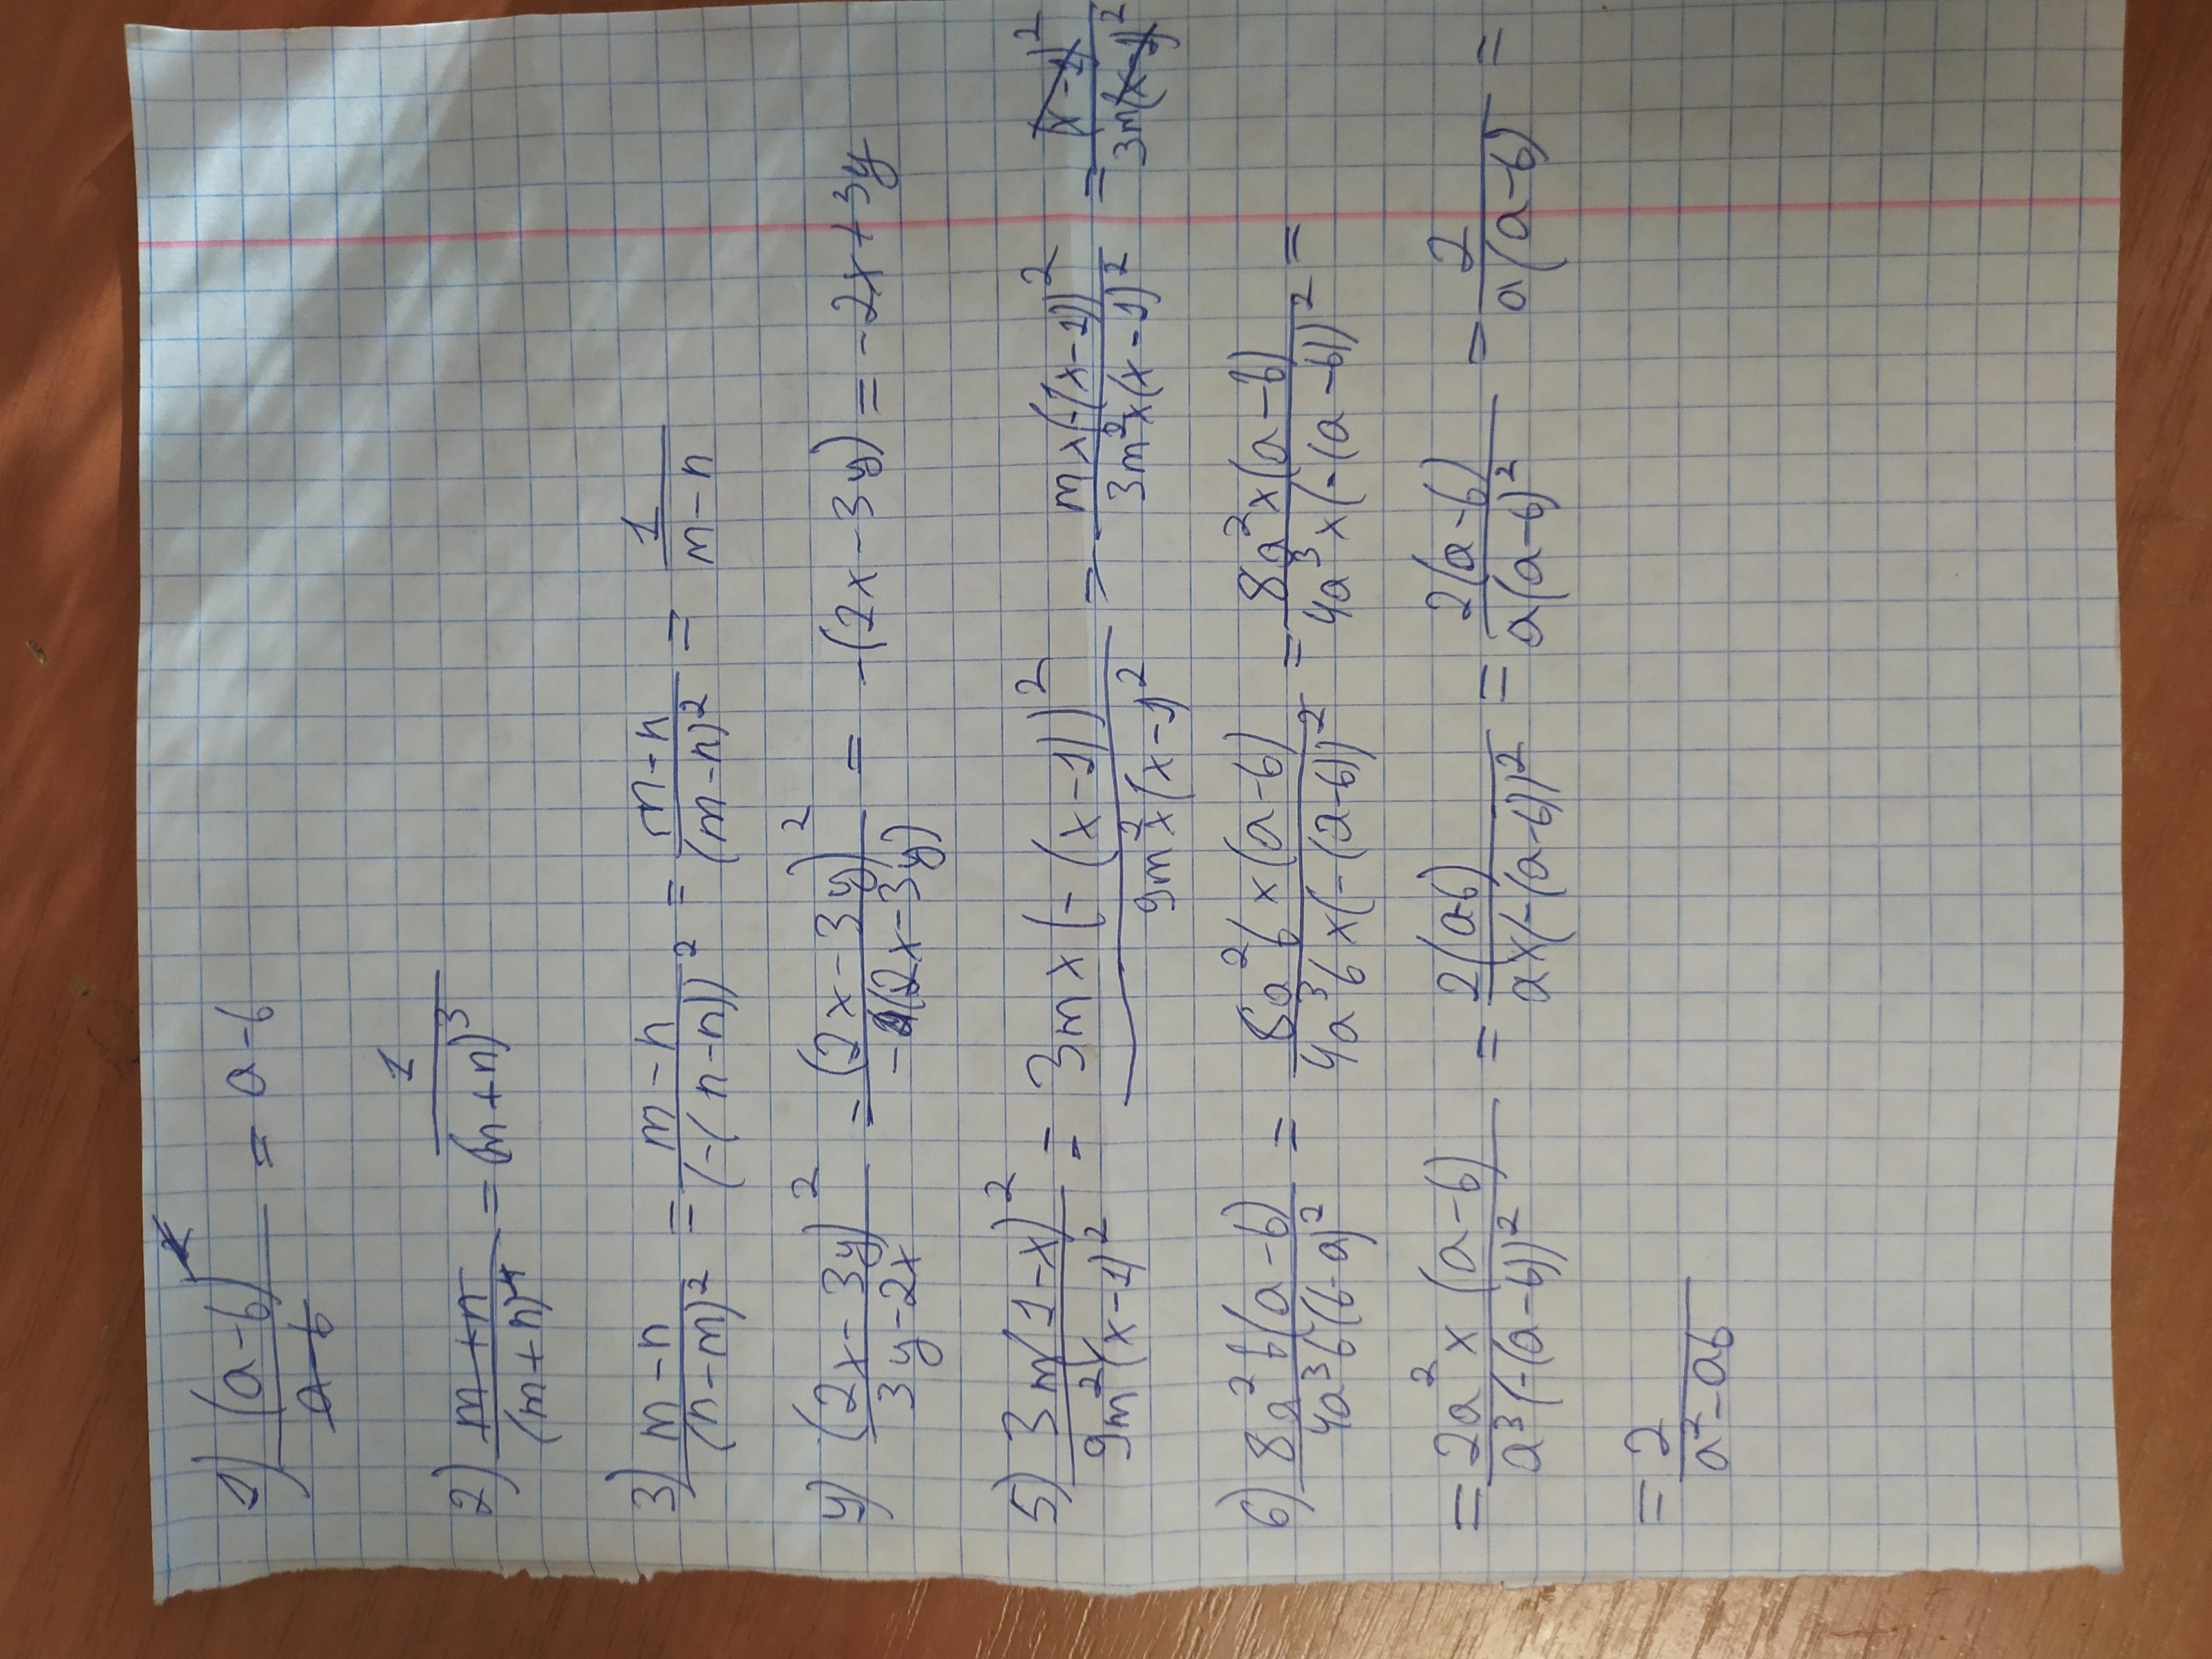 1) (a-b)²/(a-b) = a-b
2) (m+n)/(m+n)⁴ = 1/(m+n)³
3) (m-n)/(n-m)² = (m-n)/(-(n-n))² = (m-n)/(m-n)² = 1/(m-n)
4) (2x-3y)²/(3y-2x) = (2x-3y)²/(-(2x-3y)) = -(2x-3y) = -2x+3y
5) 3m(1-x)²/(9m²(x-1)²) = 3m×(-(x-1))²/(9m²×(x-1)²) = m×(-(x-1))²/(3m²×(x-1)²) = (x-1)²/(3m(x-1)²)
6) 8a²b(a-b)/(4a³b(b-a)²) = 8a²b×(a-b)/(4a³b×(-(a-b))²) = 8a²×(a-b)/(4a³×(-(a-b))²) =
= 2a²×(a-b)/(a³(-(a-b))²) = 2(ab)/(a×(-(a-b))²) = 2(a-b)/(a(a-b)²) = 2/(a(a-b)) =
= 2/(a²-ab)